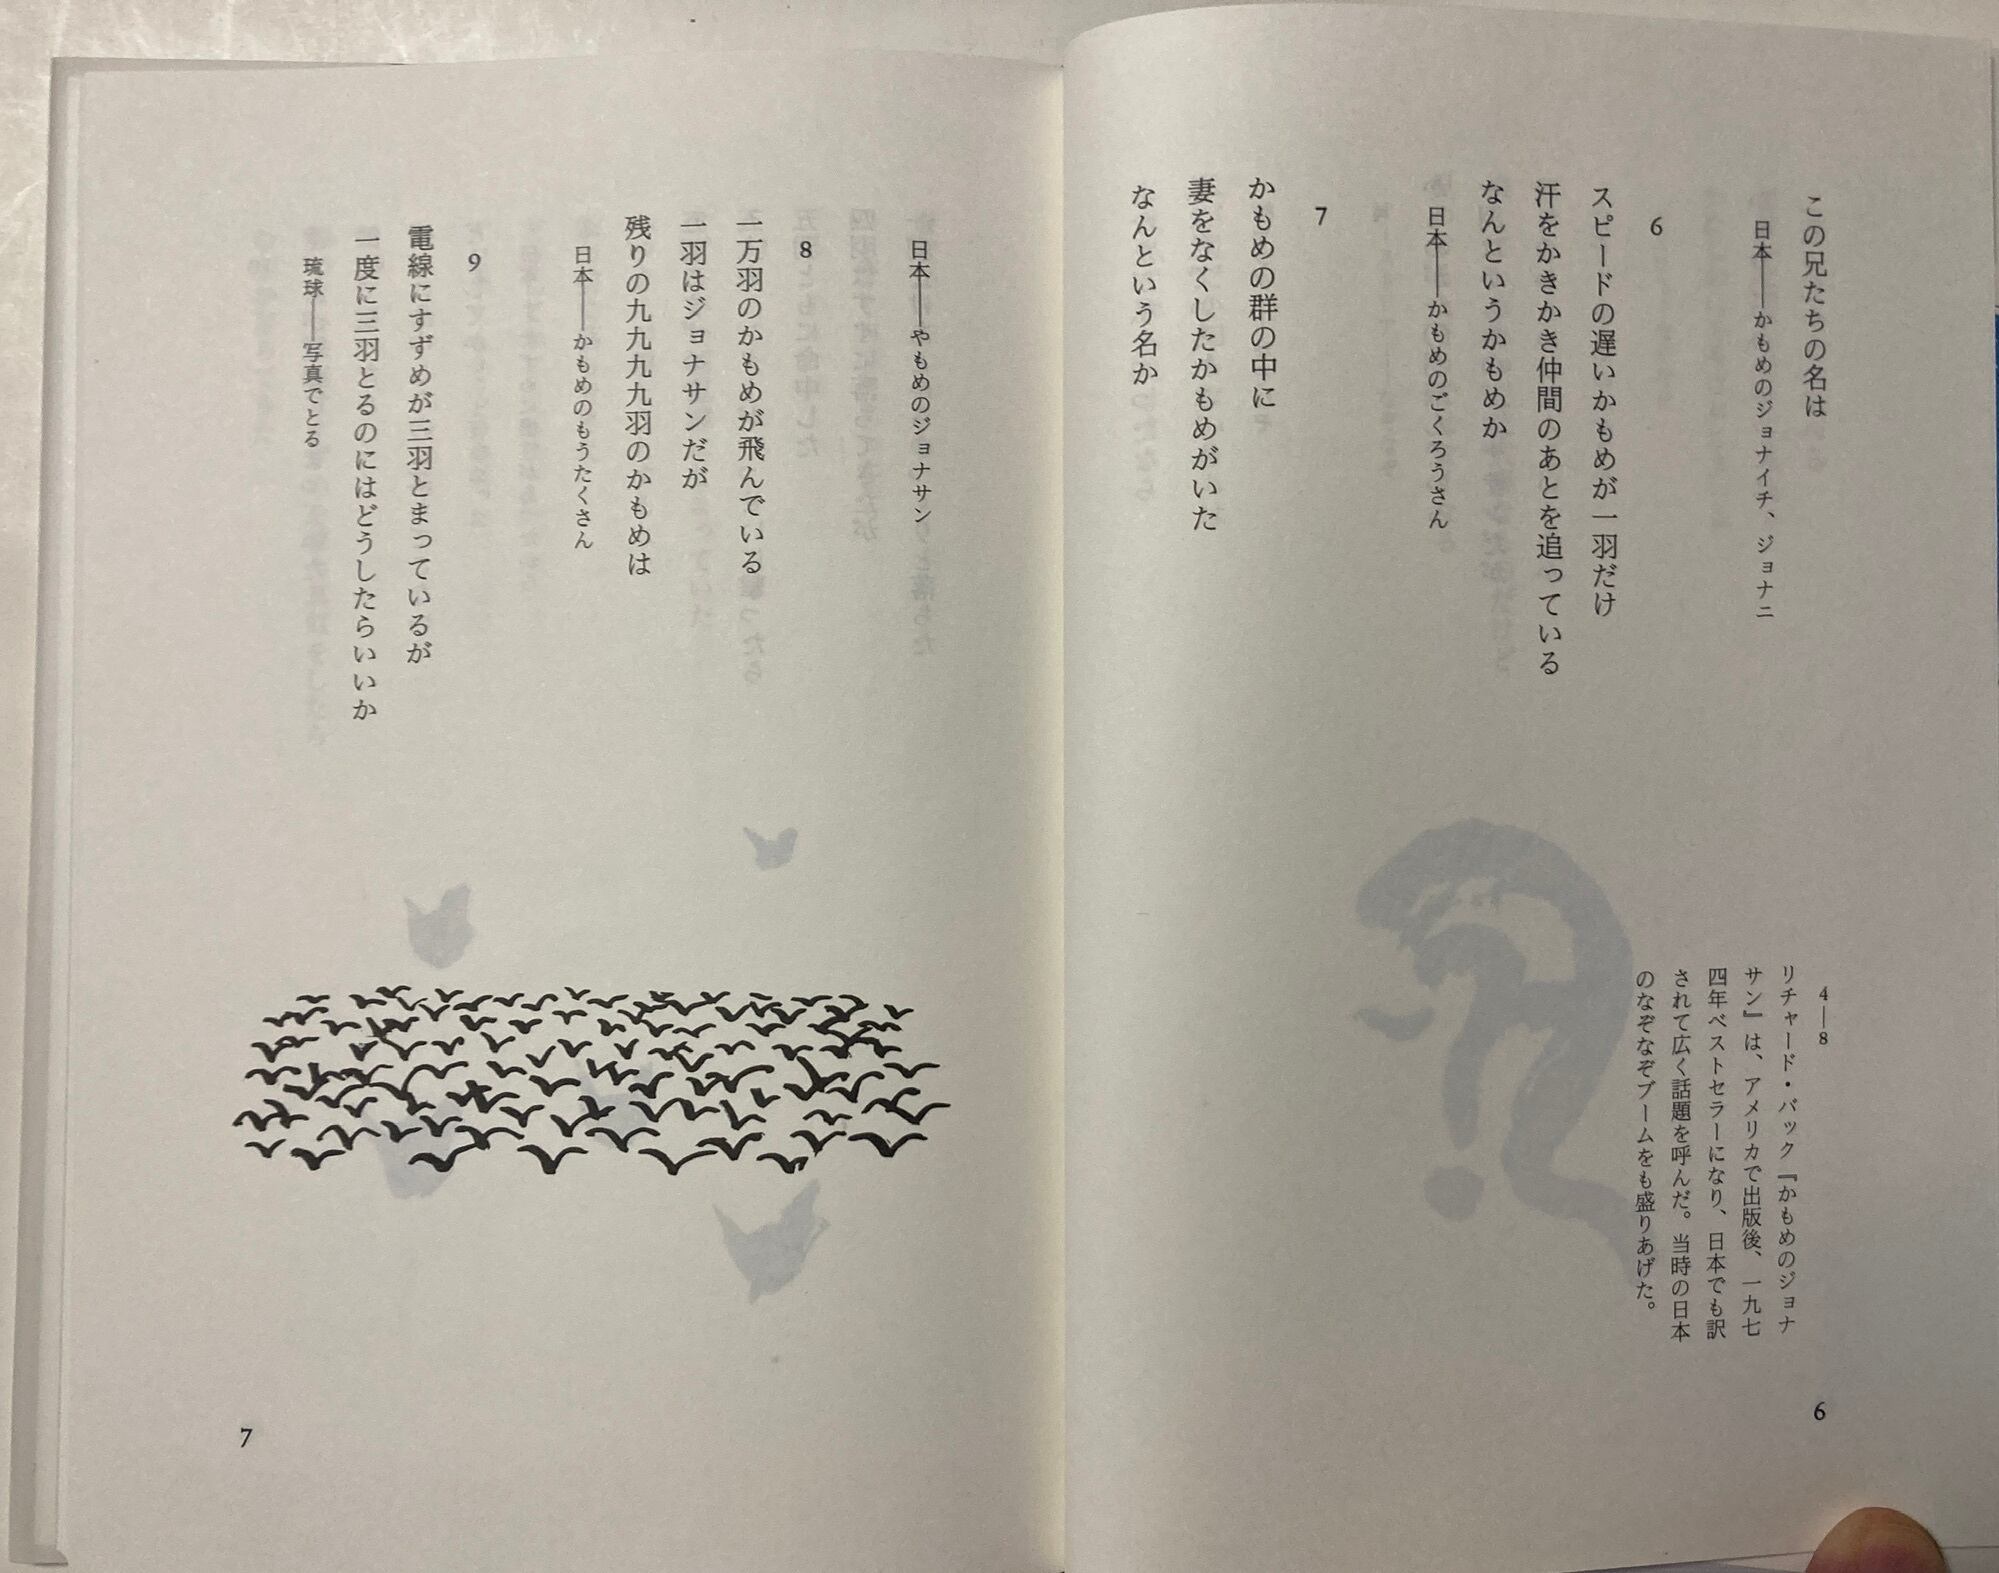 この兄たちの名は
日本——かもめのジョナイチ、ジョナニ
6
スピードの遅いかもめが一羽だけ
汗をかきかき仲間のあとを追っている
なんというかもめか
日本——かもめのごくろうさん
7
かもめの群の中に
妻をなくしたかもめがいた
なんという名か
4—8
リチャード・バック『かもめのジョナ
サン』は、アメリカで出版後、一九七
四年ベストセラーになり、日本でも訳
されて広く話題を呼んだ。当時の日本
のなぞなぞブームをも盛りあげた。
6
日本——やもめのジョナサン
8
一万羽のかもめが飛んでいる
一羽はジョナサンだが
残りの九九九九羽のかもめは
日本——かもめのもうたくさん
9
電線にすずめが三羽とまっているが
一度に三羽とるのにはどうしたらいいか
琉球——写真でとる
7